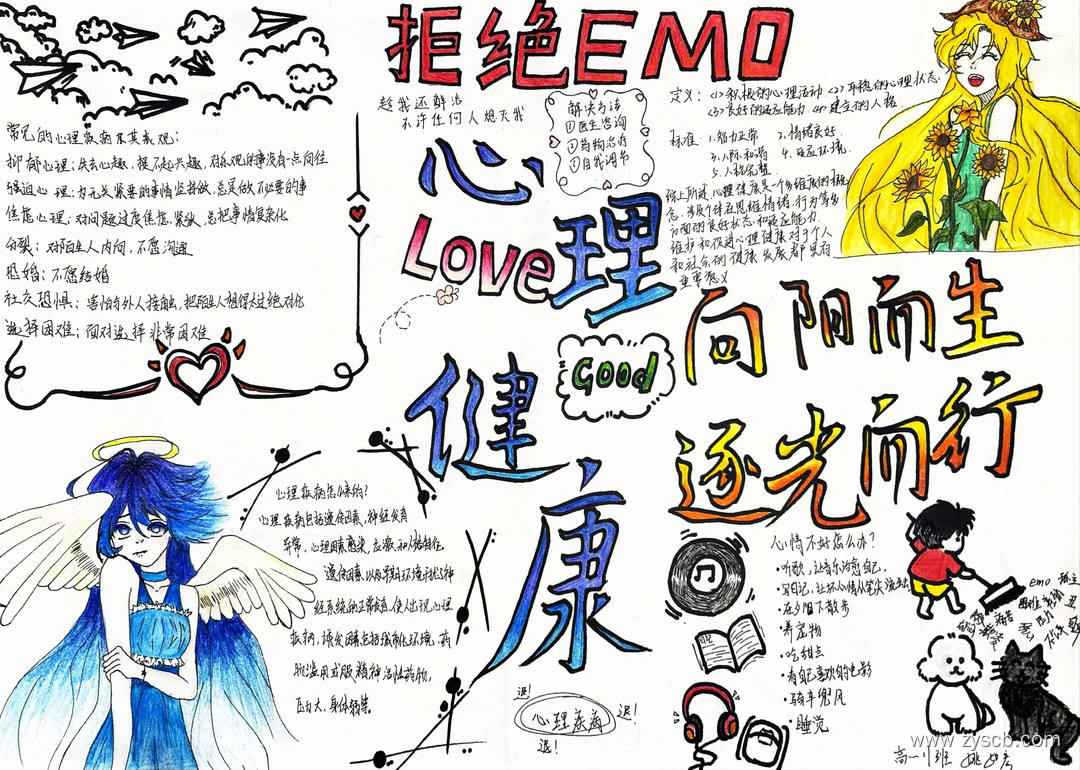 拒绝EMO
趁我还鲜活
不许任何人熄灭我
解决办法
①医生咨询
②药物治疗
③自我调节
定义：<1>积极的心理活动 <2>平稳的心理状态
<3>良好的适应能力 <4>健全的人格
标准 1.智力正常 2.情绪良好
3.人际和谐 4.适应环境
5.人格完整
综上所述，心理健康是个多维度的概
念，涉及个体在思维情绪、行为等多
方面的良好状态和适应能力
维护和促进心理健康对于个人
和社会的健康发展都具有
重要意义
常见的心理疾病及其表现：
抑郁心理：失去心趣，提不起兴趣，对乐观的事没有一点向往
强迫心理：为无关紧要的事情坚持做，总是做不必要的事
焦虑心理：对问题过度焦虑，紧张，总把事情复杂化
分裂：对陌生人内向，不愿沟通
恐婚：不愿结婚
社交恐惧：害怕与外人接触，把陌生人想得太过绝对化
选择困难：面对选择非常困难
心理
Love
健康
Good
向阳而生
逐光而行
心理疾病怎么来的？
心理疾病包括遗传因素，神经发育
异常，心理因素感染，应激和人格特征。
遗传因素以及早期环境干扰了神
经系统的正常发育，使人出现心理
疾病，诱发因素包括城市化环境、药
物滥用或服精神活性药物，
压力大，身体弱等。
退！
心理疾病
退！
退！
心情不好怎么办？
·听歌，让音乐治愈自己。
·写日记，让坏心情从笔尖流出
·在夕阳下散步
·养宠物
·吃甜点
·看自己喜欢的电影
·骑车兜风
·睡觉
emo 孤立
高一11班
www.zyscb.com